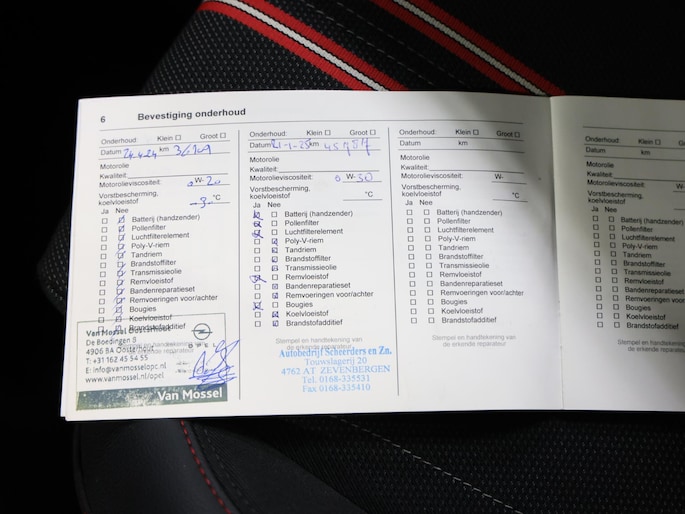 6 Bevestiging onderhoud
Onderhoud: Klein ☐ Groot ☐
Datum 24-4-24 km
Motorolie
Kwaliteit:
Motorolieviscositeit: 0W-20
Vorstbescherming,
koelvloeistof °C
Ja Nee
Batterij (handzender)
Pollenfilter
Luchtfilterelement
Poly-V-riem
Tandriem
Brandstoffilter
Transmissieolie
Remvloeistof
Bandenreparatieset
Remvoeringen voor/achter
Bougies
Koelvloeistof
Brandstofadditief
Van Mossel Oosterhout
De Boedingen 9
4906 BA Oosterhout
T: +31 162 45 54 55
E: info@vanmosselopc.nl
www.vanmossel.nl/opel
OPEL
Van Mossel
Onderhoud: Klein ☐ Groot ☐
Datum 21-1-25 km
Motorolie
Kwaliteit:
Motorolieviscositeit: 0 W-30
Vorstbescherming,
koelvloeistof °C
Ja Nee
Batterij (handzender)
Pollenfilter
Luchtfilterelement
Poly-V-riem
Tandriem
Brandstoffilter
Transmissieolie
Remvloeistof
Bandenreparatieset
Remvoeringen voor/achter
Bougies
Koelvloeistof
Brandstofadditief
Stempel en handtekening van
de erkende reparateur
Autobedrijf Scheerders en Zn.
Touwslagerij 20
4762 AT ZEVENBERGEN
Tel. 0168-335531
Fax 0168-335410
Onderhoud: Klein ☐ Groot ☐
Datum km
Motorolie
Kwaliteit:
Motorolieviscositeit: W-
Vorstbescherming,
koelvloeistof °C
Ja Nee
Batterij (handzender)
Pollenfilter
Luchtfilterelement
Poly-V-riem
Tandriem
Brandstoffilter
Transmissieolie
Remvloeistof
Bandenreparatieset
Remvoeringen voor/achter
Bougies
Koelvloeistof
Brandstofadditief
Stempel en handtekening van
de erkende reparateur
Onderhoud: Klein ☐
Datum km
Motorolie
Kwaliteit:
Motorolieviscositeit:
Vorstbescherming,
koelvloeistof
Ja Nee
Batterij (handzender)
Pollenfilter
Luchtfilterelement
Poly-V-riem
Tandriem
Brandstoffilter
Transmissieolie
Remvloeistof
Bandenreparatieset
Remvoeringen voor/achter
Bougies
Koelvloeistof
Brandstofadditief
Stempel en handtekening
de erkende reparateur